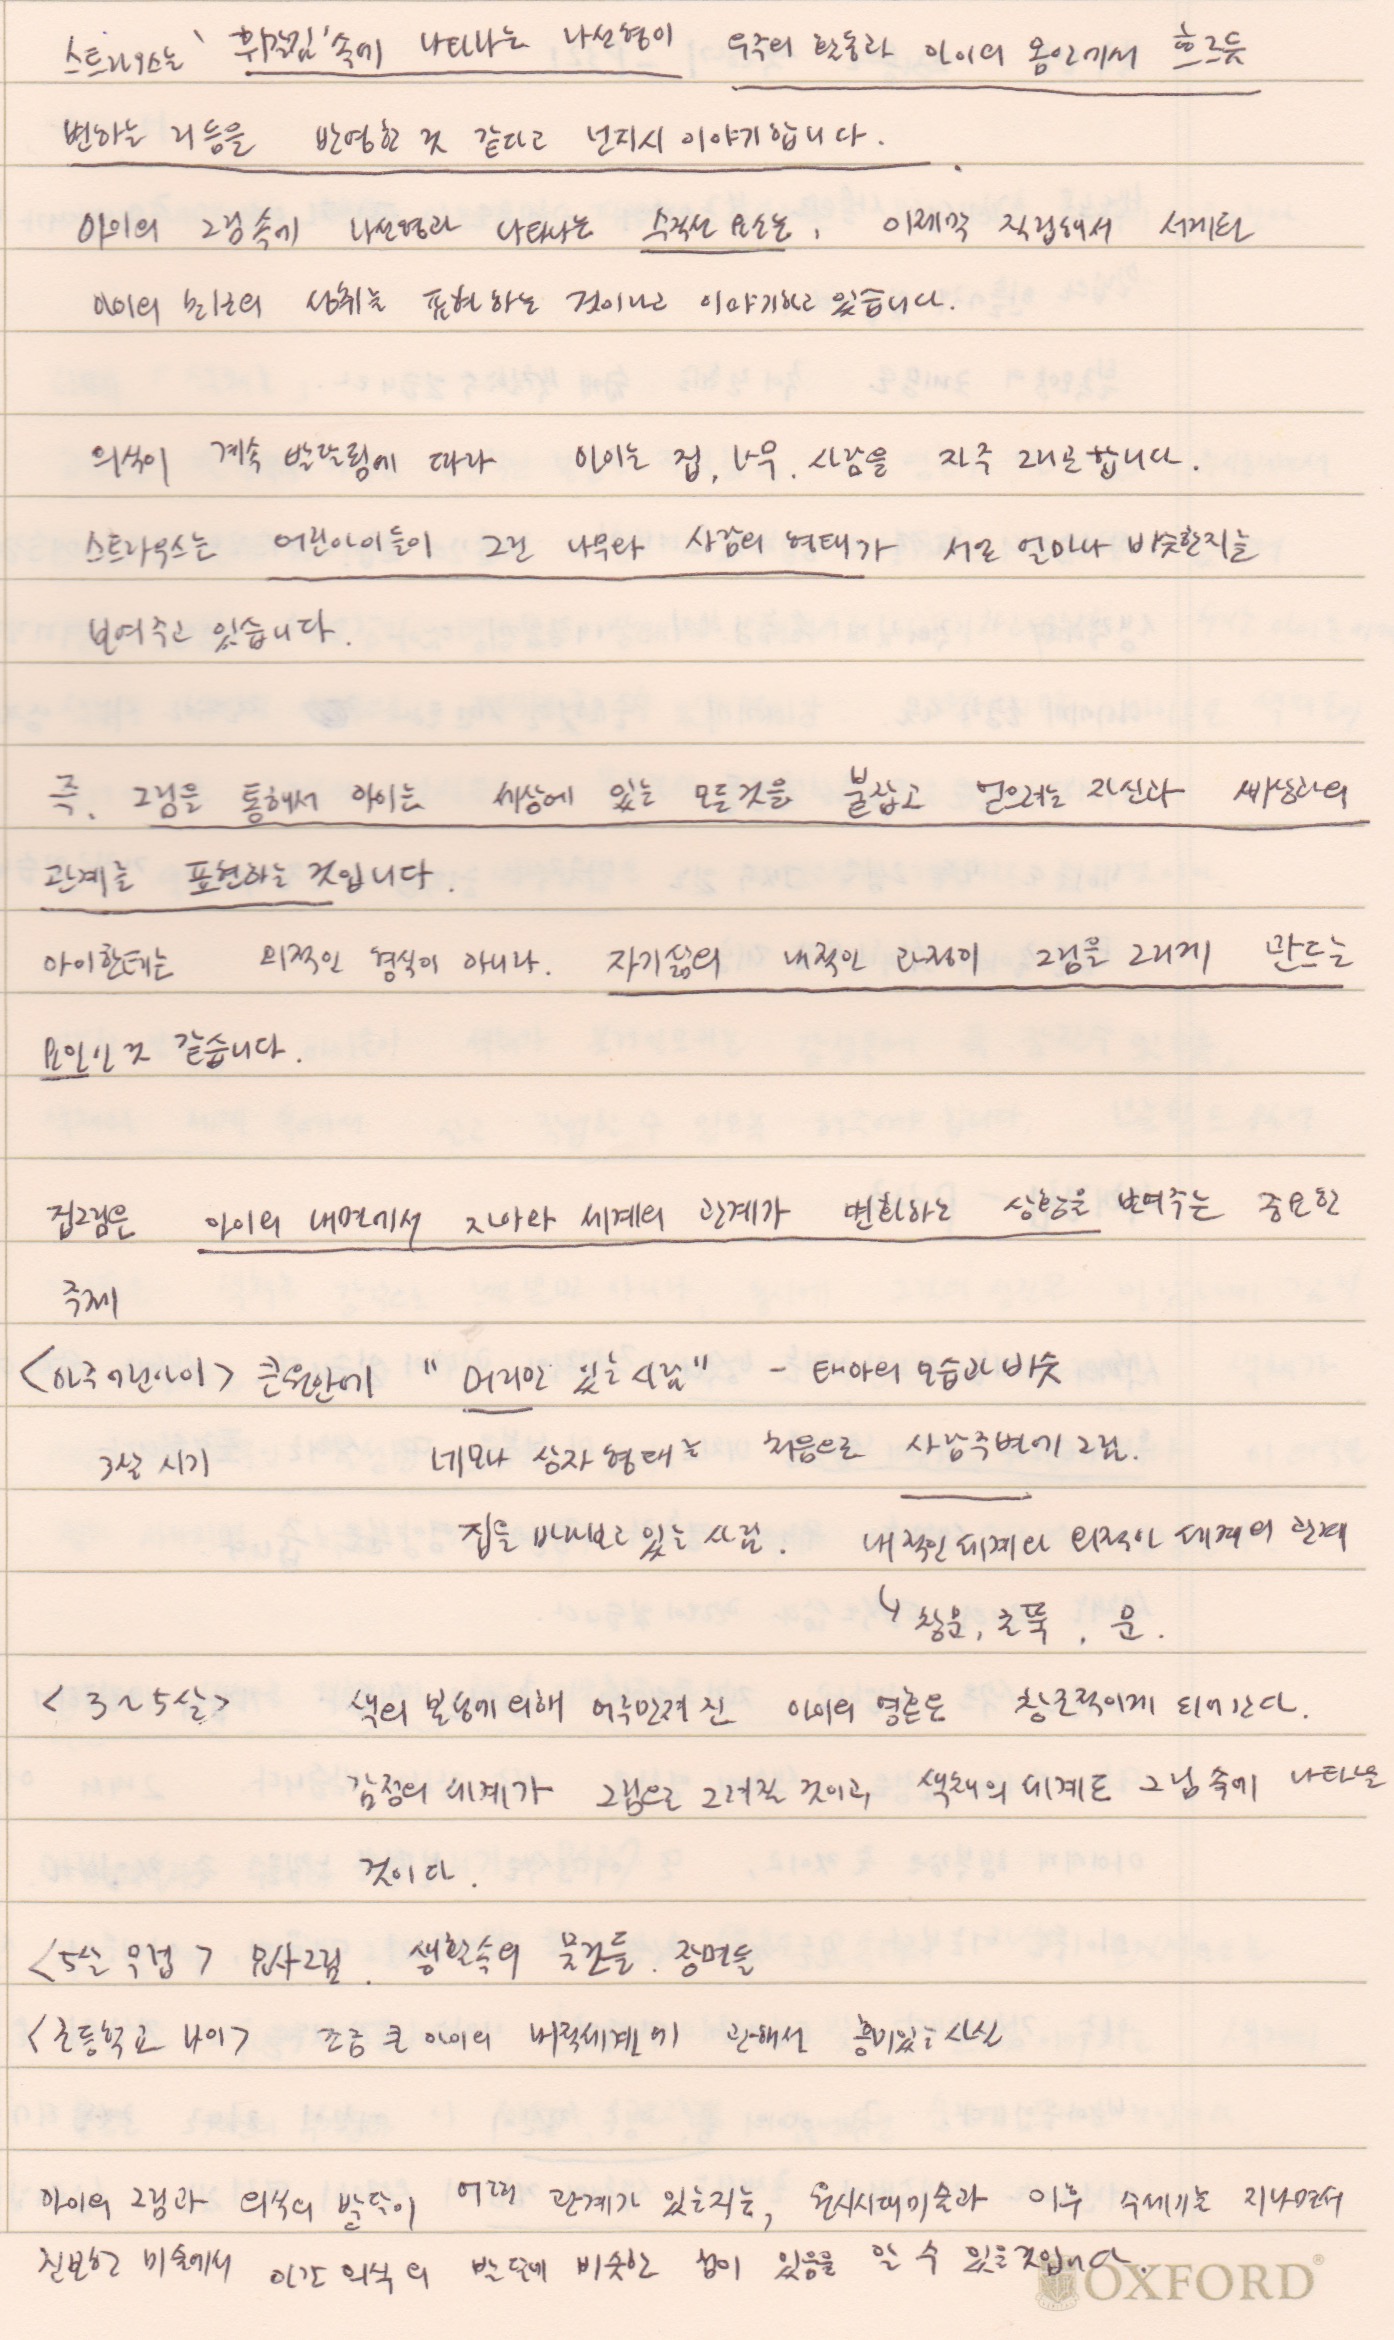 스트라우스는 '휘갈김' 속에 나타나는 나선형이 우주의 활동과 아이의 몸안에서 흐르듯
변하는 리듬을 반영한 것 같다고 넌지시 이야기합니다.
아이의 그림 속에 나선형과 나타나는 수직선 요소는, 이제막 직립해서 서게된
아이의 성취를 표현하는 것이라고 이야기하고 있습니다.
의식이 계속 발달됨에 따라 아이는 집, 나무, 사람을 자주 그리곤 합니다.
스트라우스는 어린아이들이 그린 나무와 사람의 형태가 서로 얼마나 비슷한지를
보여주고 있습니다.
즉, 그림을 통해서 아이는 세상에 있는 모든것을 붙잡고 얻으려는 자신과 세상과의
관계를 표현하는 것입니다.
아이한테는 외적인 형식이 아니라, 자기삶의 내적인 과정이 그림을 그리게 만드는
요인인 것 같습니다.
집그림은 아이의 내면에서 자아와 세계의 관계가 변화하는 상황을 보여주는 중요한
주제
<아주 어린아이> 큰 원안에 "머리만 있는 사람" - 태아의 모습과 비슷
3살 시기 네모나 상자 형태를 처음으로 사람주변에 그림.
집을 바라보고 있는 사람. 내적인 세계와 외적인 세계의 관계
↳ 창문, 굴뚝, 문.
<3~5살> 색의 본성에 의해 어루만져 진 아이의 영혼은 창조적이게 되어간다.
감정의 세계가 그림으로 그려질 것이고, 색채의 세계도 그림 속에 나타날
것이다.
<5살 무렵> 묘사그림. 생활속의 물건들. 장면들
<초등학교 나이> 조금 큰 아이의 내적세계에 관해서 흥미있는 사실
아이의 그림과 의식의 발달이 어떤 관계가 있는지는, 원시시대미술과 이후 수세기를 지나면서
진보한 미술에서 인간 의식의 발달에 비슷한 점이 있음을 알 수 있을것입니다.
OXFORD®